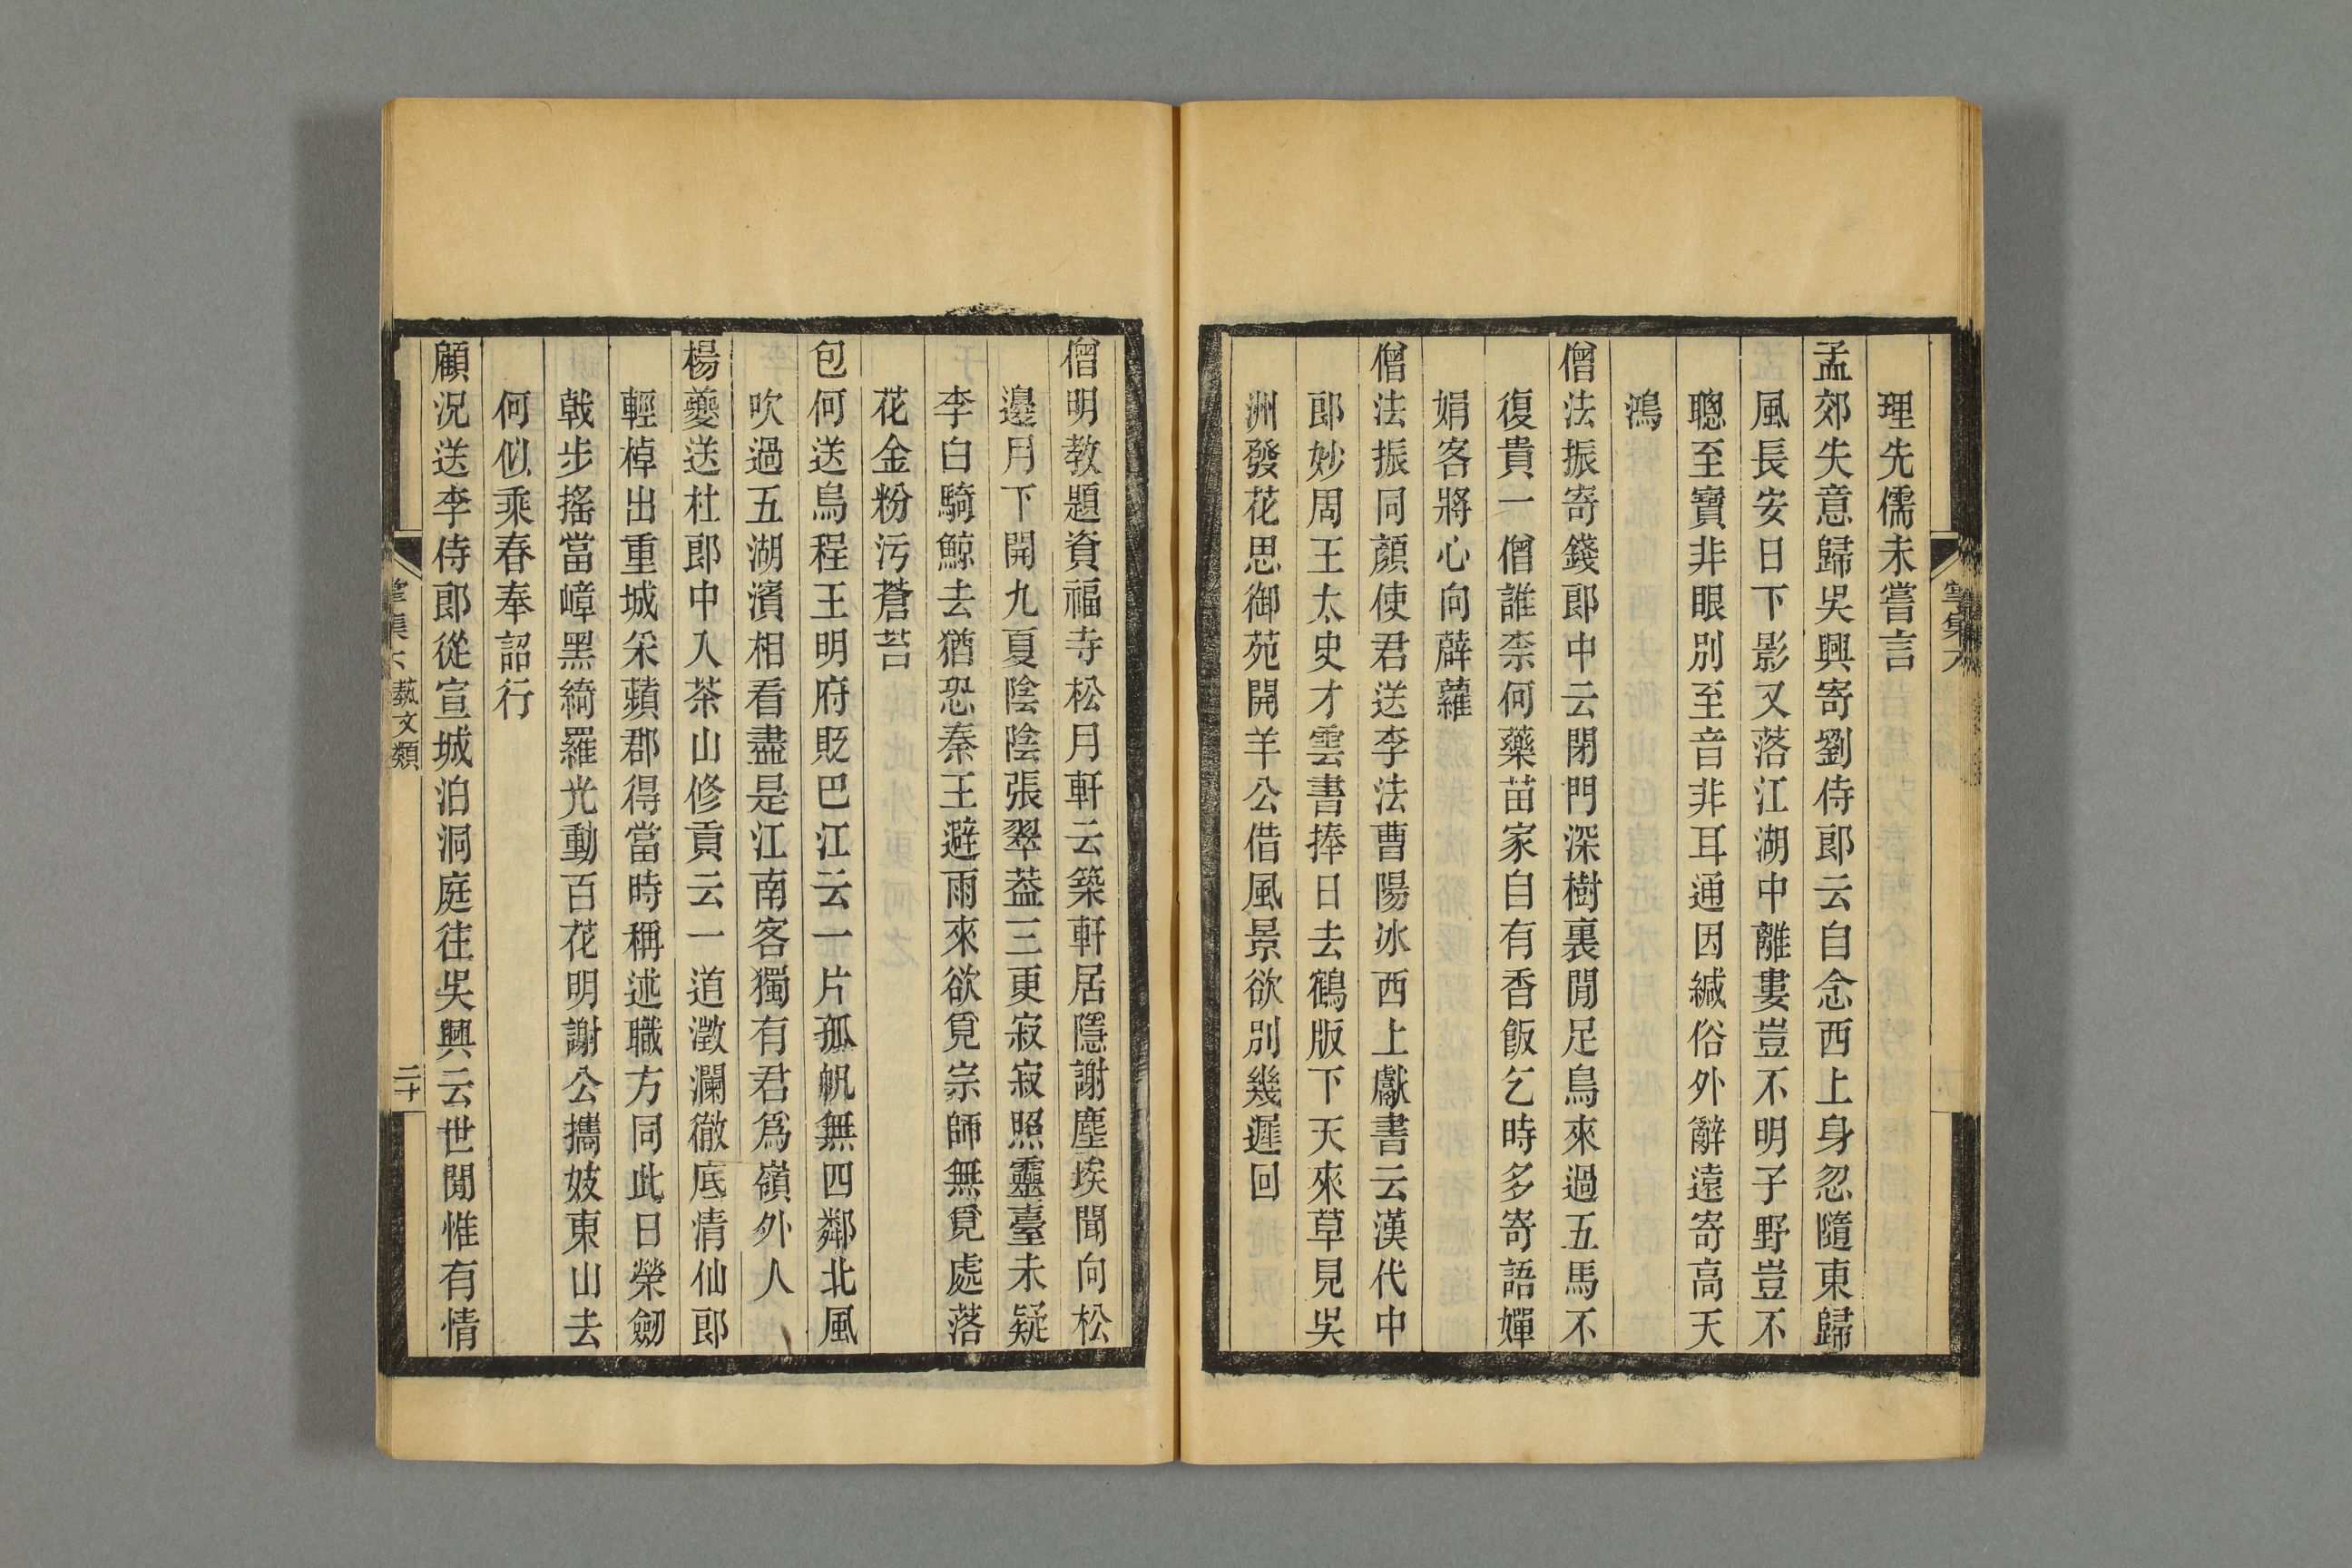 理先儒未嘗言
孟郊失意歸吳興寄劉侍郎云自念西上身忽隨東歸
風長安日下影又落江湖中離婁豈不明子野豈不
聰至寶非眼別至音非耳通因緘俗外辭遠寄高天
鴻
僧法振寄錢郎中云閉門深樹裏閒足鳥來過五馬不
復貴一僧誰柰何藥苗家自有香飯乞時多寄語嬋
娟客將心向薜蘿
僧法振同顏使君送李法曹陽冰西上獻書云漢代中
郎妙周王太史才雲書捧日去鶴版下天來草見吳
洲發花思御苑開羊公借風景欲別幾遲回
僧明教題資福寺松月軒云築軒居隱謝塵埃聞向松
邉月下開九夏陰陰張翠葢三更寂寂照靈臺未疑
李白騎鯨去猶恐秦王避雨來欲覓宗師無覓處落
花金粉污蒼苔
包何送烏程王明府貶巴江云一片孤帆無四鄰北風
吹過五湖濱相看盡是江南客獨有君爲嶺外人
楊夔送杜郎中入茶山修貢云一道澂瀾徹底清仙郎
輕棹出重城采蘋郡得當時稱述職方同此日榮劒
戟步搖當嶂黑綺羅光動百花明謝公攜妓東山去
何似乘春奉詔行
顧況送李侍郎從宣城泊洞庭往吳興云世閒惟有情
掌集六 藝文類 二十